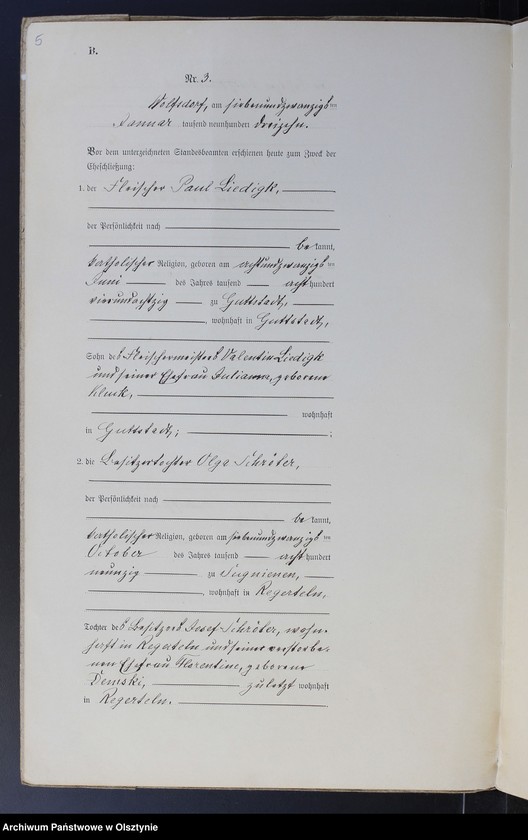 5
B.
Nr. 3.
Wolfsdorf, am siebenundzwanzigsten
Januar tausend neunhundert dreizehn.
Vor dem unterzeichneten Standesbeamten erschienen heute zum Zweck der
Eheschließung:
1. der Fleischer Paul Liedigk,
der Persönlichkeit nach
be kannt,
katholischer Religion, geboren am achtundzwanzigsten
Juni des Jahres tausend acht hundert
vierundachtzig zu Guttstadt,
, wohnhaft in Guttstadt,
Sohn des Fleischermeisters Valentin Liedigk
und seiner Ehefrau Julianna, geborene
wohnhaft
in Guttstadt;
2. die Besitzertochter Olga Schröter,
der Persönlichkeit nach
be kannt,
katholischer Religion, geboren am siebenundzwanzigsten
October des Jahres tausend acht hundert
neunzig zu Sugnienen,
, wohnhaft in Regerteln,
Tochter des Besitzers Josef Schröter, wohn-
haft in Regerteln und seiner verstorbe-
nen Ehefrau Florentine, geborene
Demski, zuletzt wohnhaft
in Regerteln.
Archiwum Państwowe w Olsztynie